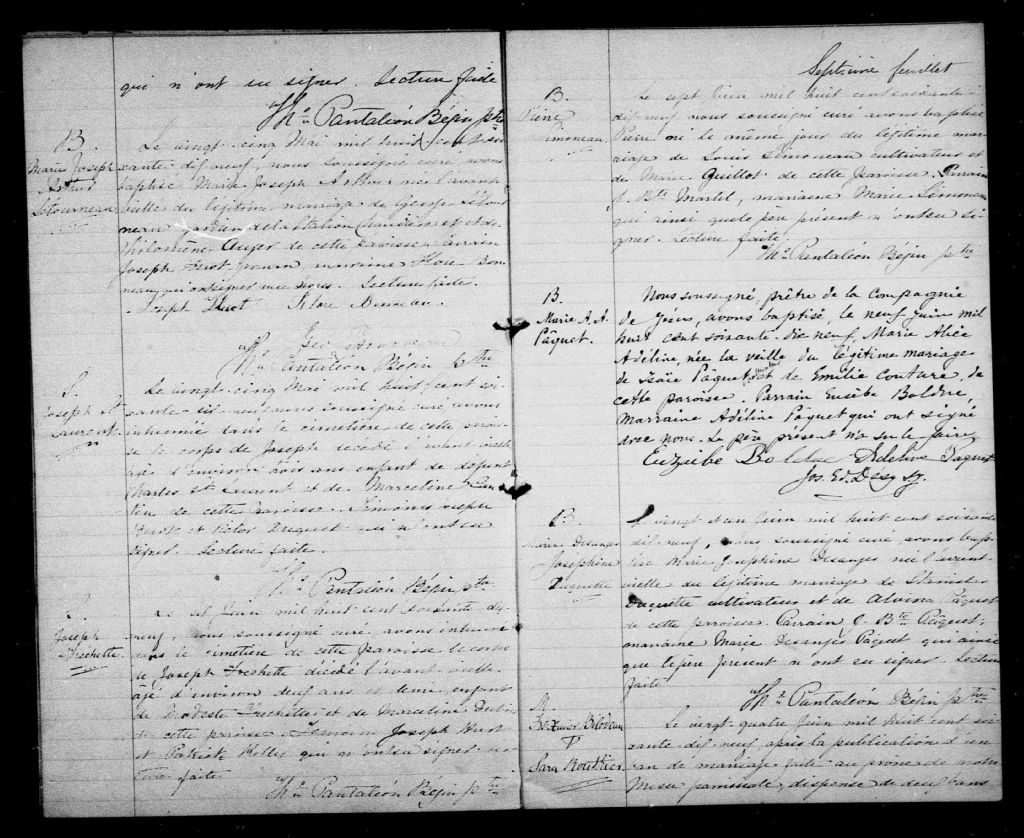 qui n'ont su signer. Lecture faite
Ths Pantaléon Bégin ptre
B.
Marie Joseph
Arthur
Létourneau
Le vingt-cinq Mai mil huit cent soi-
xante dix-neuf, nous soussigné curé, avons
baptisé Marie Joseph Arthur née l'avant
veille du légitime mariage de George Létour
neau gardien de la station Chaudière et de
Philomène Auger de cette paroisse. Parrain
Joseph Huot marraine Flore
qui ont signé avec nous. Lecture faite.
Joseph Huot Flore
Geo Létourneau
Ths Pantaléon Bégin ptre
S.
Joseph St
Laurent
Le vingt-cinq Mai mil huit cent soi-
xante-dix-neuf nous soussigné curé avons
inhumé dans le cimetière de cette parois-
se le corps de Joseph décédé l'avant veille
âgé d'environ trois ans enfant de défunt
Charles St Laurent et de Marceline
de cette paroisse. Témoins Joseph
Huot et Victor Duquet qui n'ont su
signer. Lecture faite.
Ths Pantaléon Bégin ptre
S.
Joseph
Frechette
Le dix Juin mil huit cent soixante dix-
neuf, nous soussigné curé, avons inhumé
dans le cimetière de cette paroisse le corps
de Joseph Frechette décédé l'avant veille
âgé d'environ deux ans et demi enfant
de Modeste Frechette et de Marceline
de cette paroisse. Témoins Joseph Huot
et Patrick Kelly qui n'ont su signer. Lec
ture faite
Ths Pantaléon Bégin ptre
Septième feuillet
B.
Pierre
Simoneau
Le sept Juin mil huit cent soixante-
dix-neuf nous soussigné curé avons baptisé
Pierre né le même jour du légitime ma-
riage de Louis Simoneau cultivateur et
de Marie Guillot de cette paroisse. Parrain
J. Bte Martel, marraine Marie Simoneau
qui ainsi que le père présent n'ont su si-
gner. Lecture faite.
Ths Pantaléon Bégin ptre
B.
Marie A. A.
Pâquet.
Nous soussigné, prêtre de la Compagnie
de Jésus, avons baptisé, le neuf Juin mil
huit cent soixante-dix neuf, Marie Alice
Adéline, née la veille du légitime mariage
de Isaïe Pâquet et de Emilie Couture, de
cette paroisse. Parrain Eusèbe Bolduc,
Marraine Adéline Pâquet qui ont signé
avec nous. Le père présent n'a su le faire
Euzèbe Bolduc Adeline Paquet
Jos. Ed. Désy Sj.
B.
Marie Desanges
Josephine
Duquette
Le vingt et un Juin mil huit cent soixante
dix-neuf, nous soussigné curé, avons bap-
tisé Marie Josephine Desanges née l'avant
veille du légitime mariage de Stanislas
Duquette cultivateur et de Alvina Pâquet
de cette paroisse. Parrain J. Bte Pâquet,
marraine Marie Desanges Pâquet qui ainsi
que le père présent n'ont su signer. Lecture
faite
Ths Pantaléon Bégin ptre
M.
F. Xavier Bilodeau
&
Sara Routhier
Le vingt-quatre Juin mil huit cent soi-
xante-dix-neuf après la publication d'un
ban de mariage faite au prône de notre
Messe paroissiale, dispense de deux bans